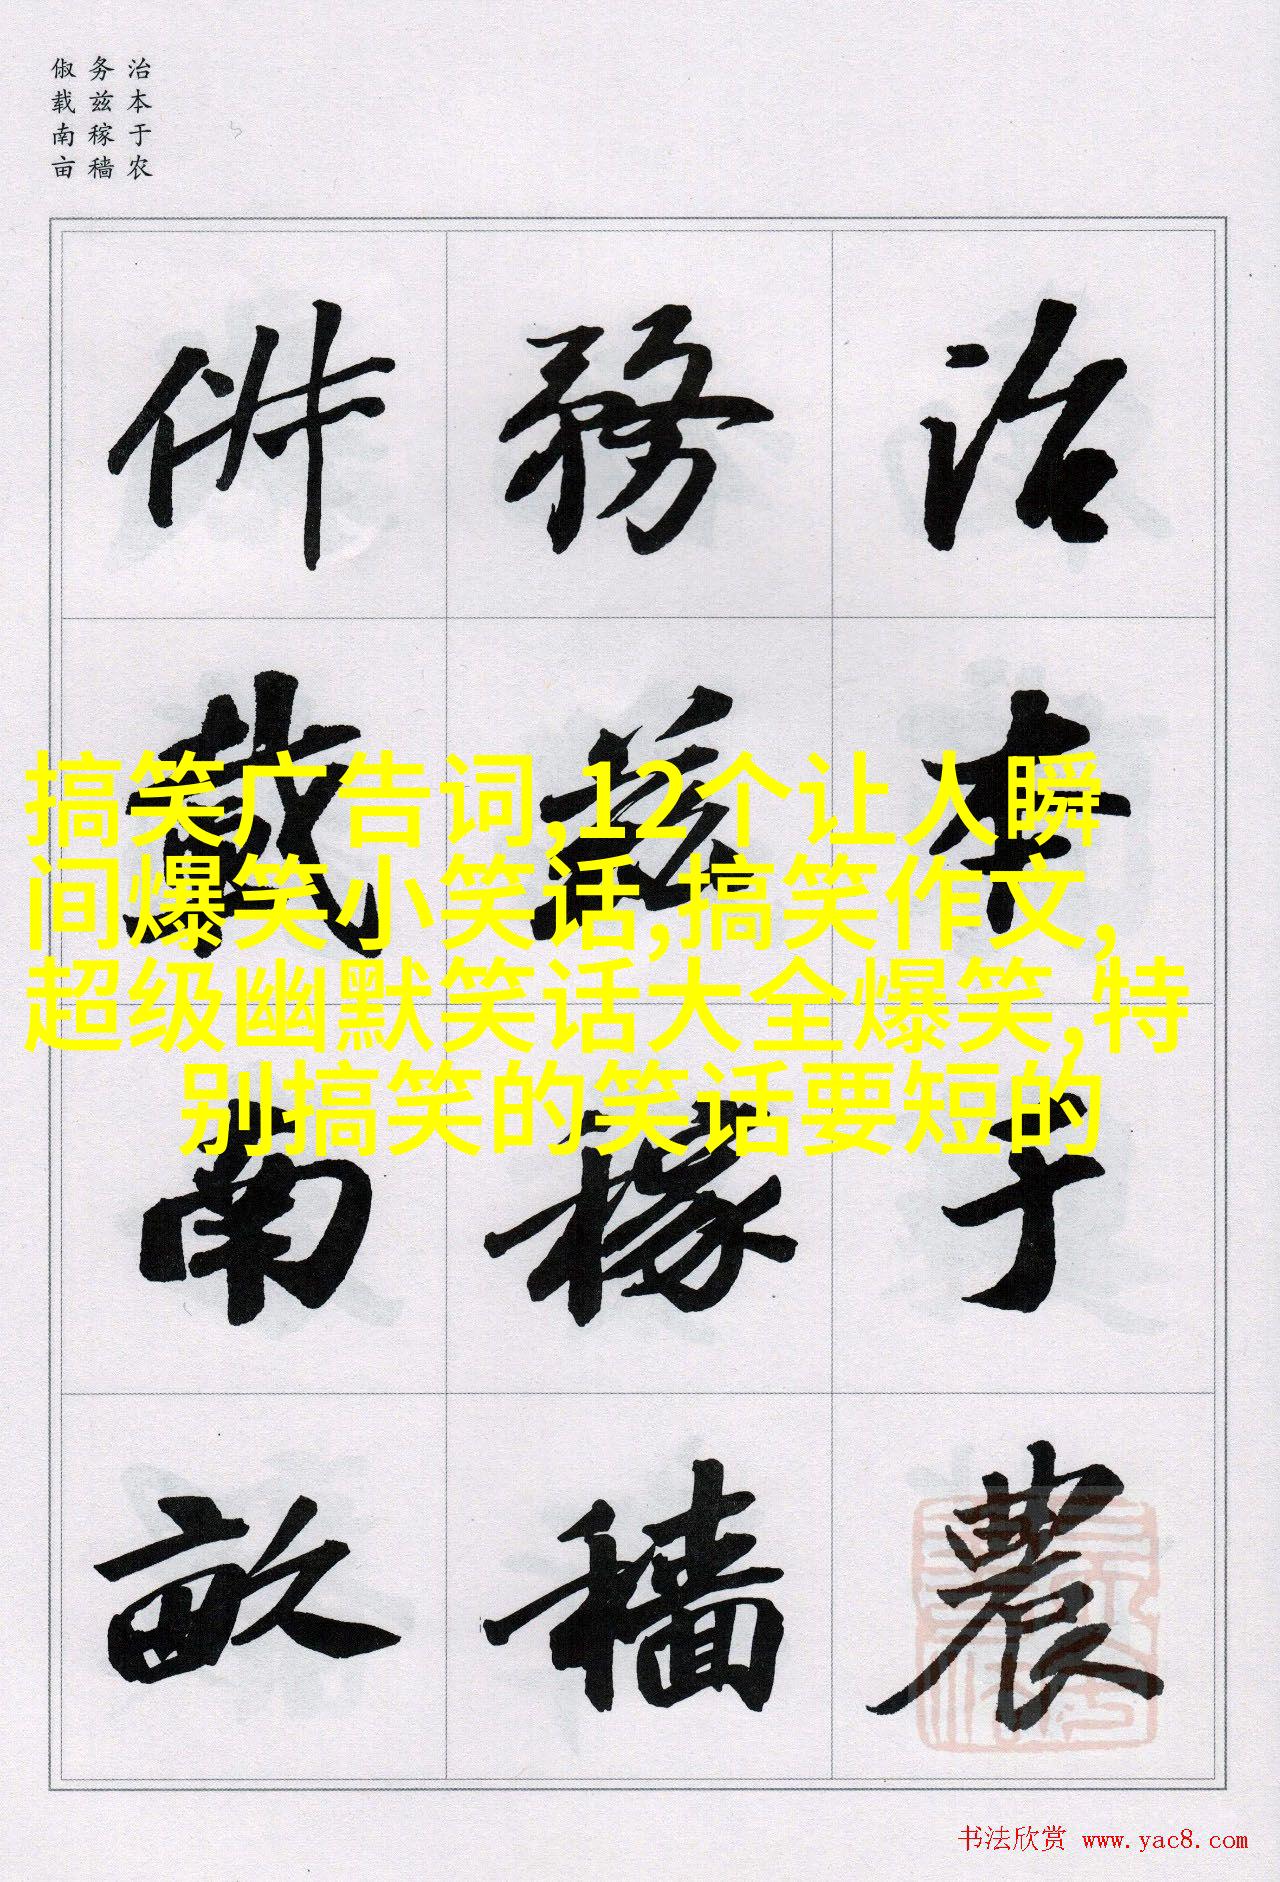 治本于农
务兹稼穑
俶载南亩
治本于農
務茲稼穡
俶載南畝
搞笑广告词,12个让人瞬
间爆笑小笑话,搞笑作文,
超级幽默笑话大全爆笑,特
别搞笑的笑话要短的
书法欣赏 www.yac8.com